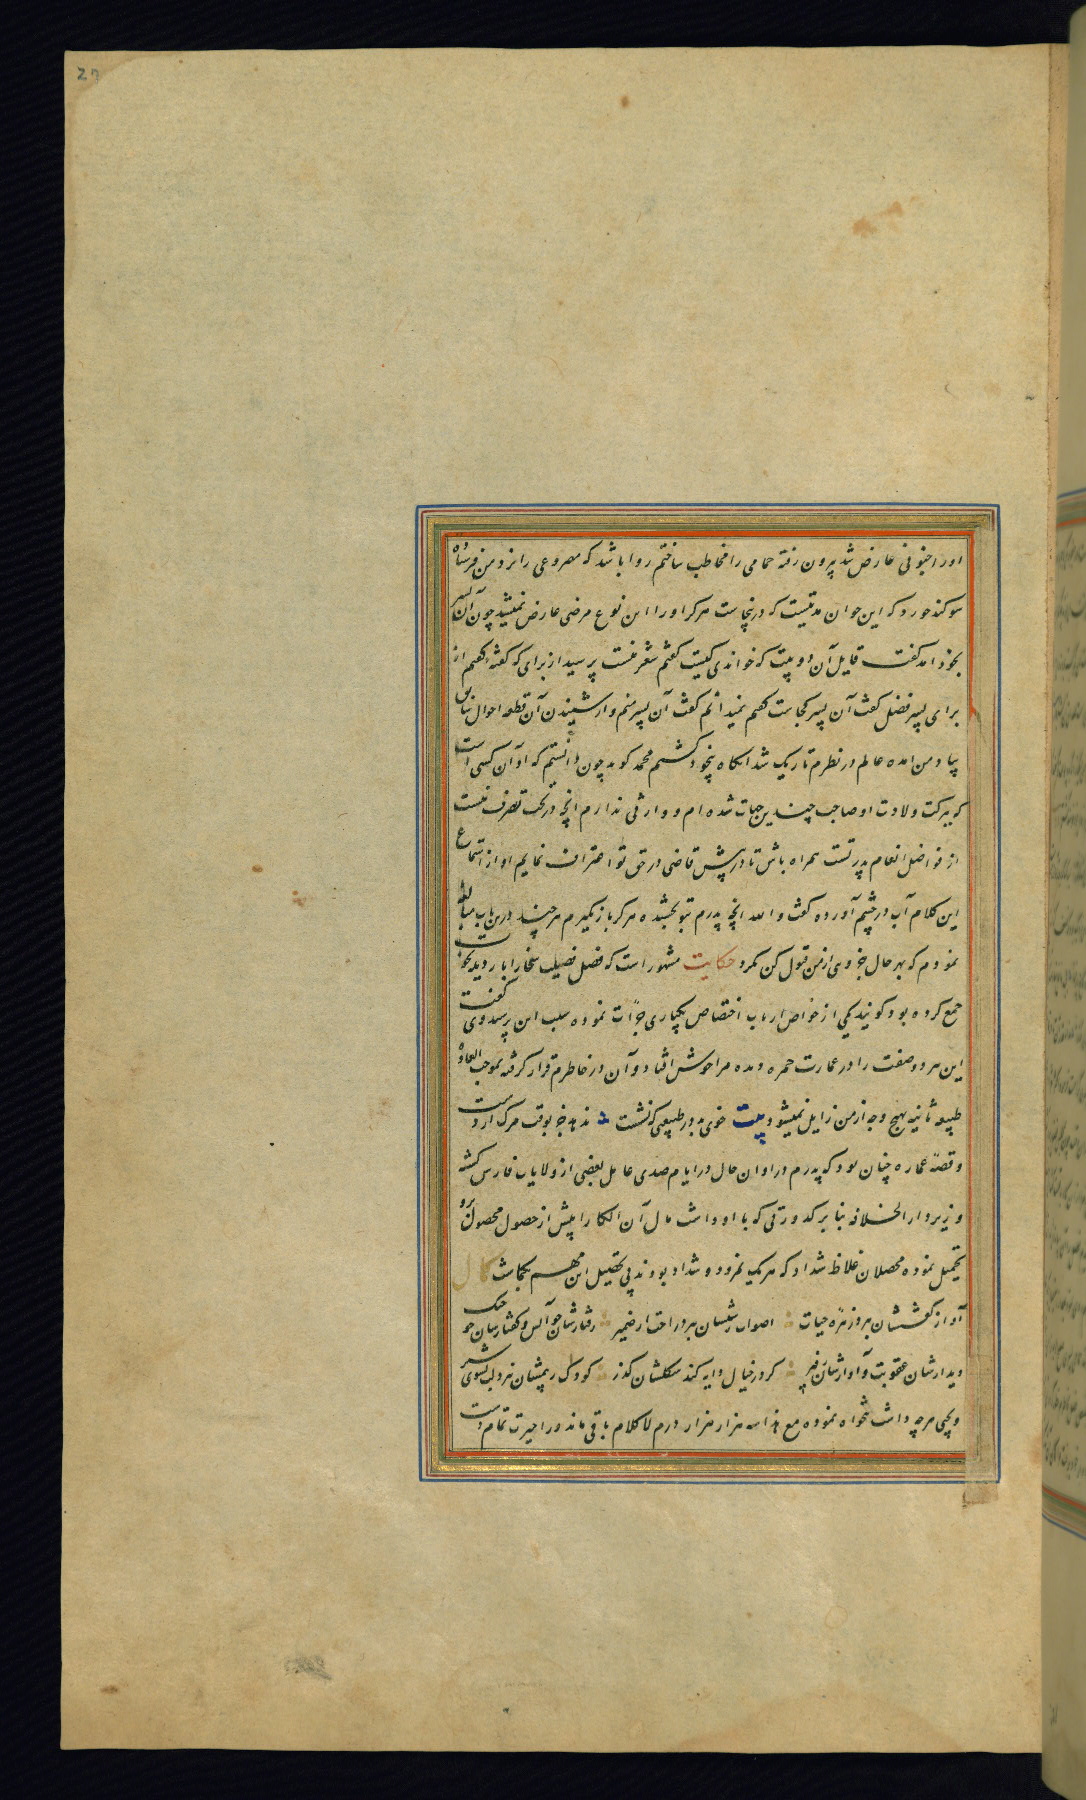 27
او را جنونی عارض شد بیرون رفته حمامی را مخاطب ساختم روا باشد که مصروعی را نزد من فرستاده
سوکند خورد که این جوان مدتیست که درینجاست هرکز او را این نوع مرضی عارض نمیشد چون آن پسر
بخود آمد کفت قایل آن دو بیت که خواندی کیست کفتم شعر منست پرسید از برای که کفته کفتم از
برای پسر فضل کفت آن پسر کجاست کفتم نمیدانم کفت آن پسر منم و از شنیدن آن قطعه احوال سابق
بیاد من آمده عالم در نظرم تاریک شد آنکاه بیخود کشتم محمد کوید چون دانستم که او آن کسی است
که ببرکت ولادت او صاحب چندین جهات شده ام و وارثی ندارم آنچه در تحت تصرف منست
از فواضل انعام پدر تست همراه باش تا در پیش قاضی در حق تو اعتراف نمایم او از استماع
این کلام آب در چشم آورده کفت والله آنچه پدرم بتو بخشیده هرکز باز نکیرم هرچند درین باب مبالغه
نمودم که بهر حال جزوی از من قبول کن نکرد حکایت مشهور است که فضل فضیلت سخا را با ردیلت نخوت
جمع کرده بود کویند یکی از خواص ارباب اختصاص یکباری جرأت نموده سبب این پرسید وی کفت
این هر دو صفت را در عمارت حمزه دیده مرا خوش افتاد و آن در خاطرم قرار کرفته بموجب العاده
طبیعة ثانیه بهیچ وجه از من زایل نمیشود بیت خوی بد در طبیعتی که نشست ندهد جز بوقت مرک از دست
و قصه عماره چنان بود که پدرم در اوان حال در ایام مهدی عامل بعضی از ولایات فارس کشته
وزیر دار الخلافه بنا بر کدورتی که با او داشت مال آن الکا را پیش از حصول محصول برو
تحمیل نموده محصلان غلاظ شداد که هر یک نمرود و شداد بودند پی تحصیل این مهم بکماشت
آواز کفششان
دیدارشان عقوبت و آوازشان زفیر
و یحیی هرچه داشت تنخواه نموده مع هذا سه هزار هزار درم لا کلام باقی ماند و راه حیرت تمام دست